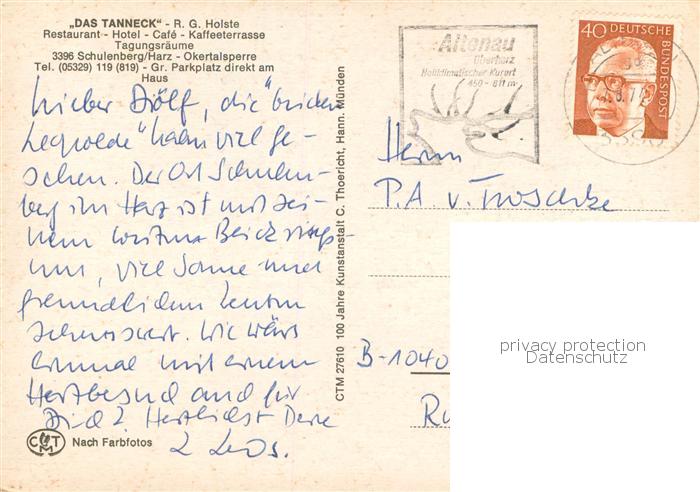 „DAS TANNECK" - R. G. Holste
Restaurant - Hotel - Café - Kaffeeterrasse
Tagungsräume
3396 Schulenberg/Harz - Okertalsperre
Tel. (05329) 119 (819) - Gr. Parkplatz direkt am
Haus
Lieber Dölf, die "beiden
" haben viel ge-
sehen. Der Ort Schulen-
berg im Harz ist mit sei-
nem Blick rings-
um, viel Sonne und
freundlichen Leuten
sehenswert. Wie wärs
einmal mit einem
Harzbesuch auch für
Dich? Herzlichst Deine
2
CTM
Nach Farbfotos
CTM 27610 100 Jahre Kunstanstalt C. Thoericht, Hann. Münden
Altenau
Oberharz
Heilklimatischer Kurort
450 - 811 m
40 DEUTSCHE BUNDESPOST
Herrn
P.A. v. Troschke
B-1040
privacy protection
Datenschutz